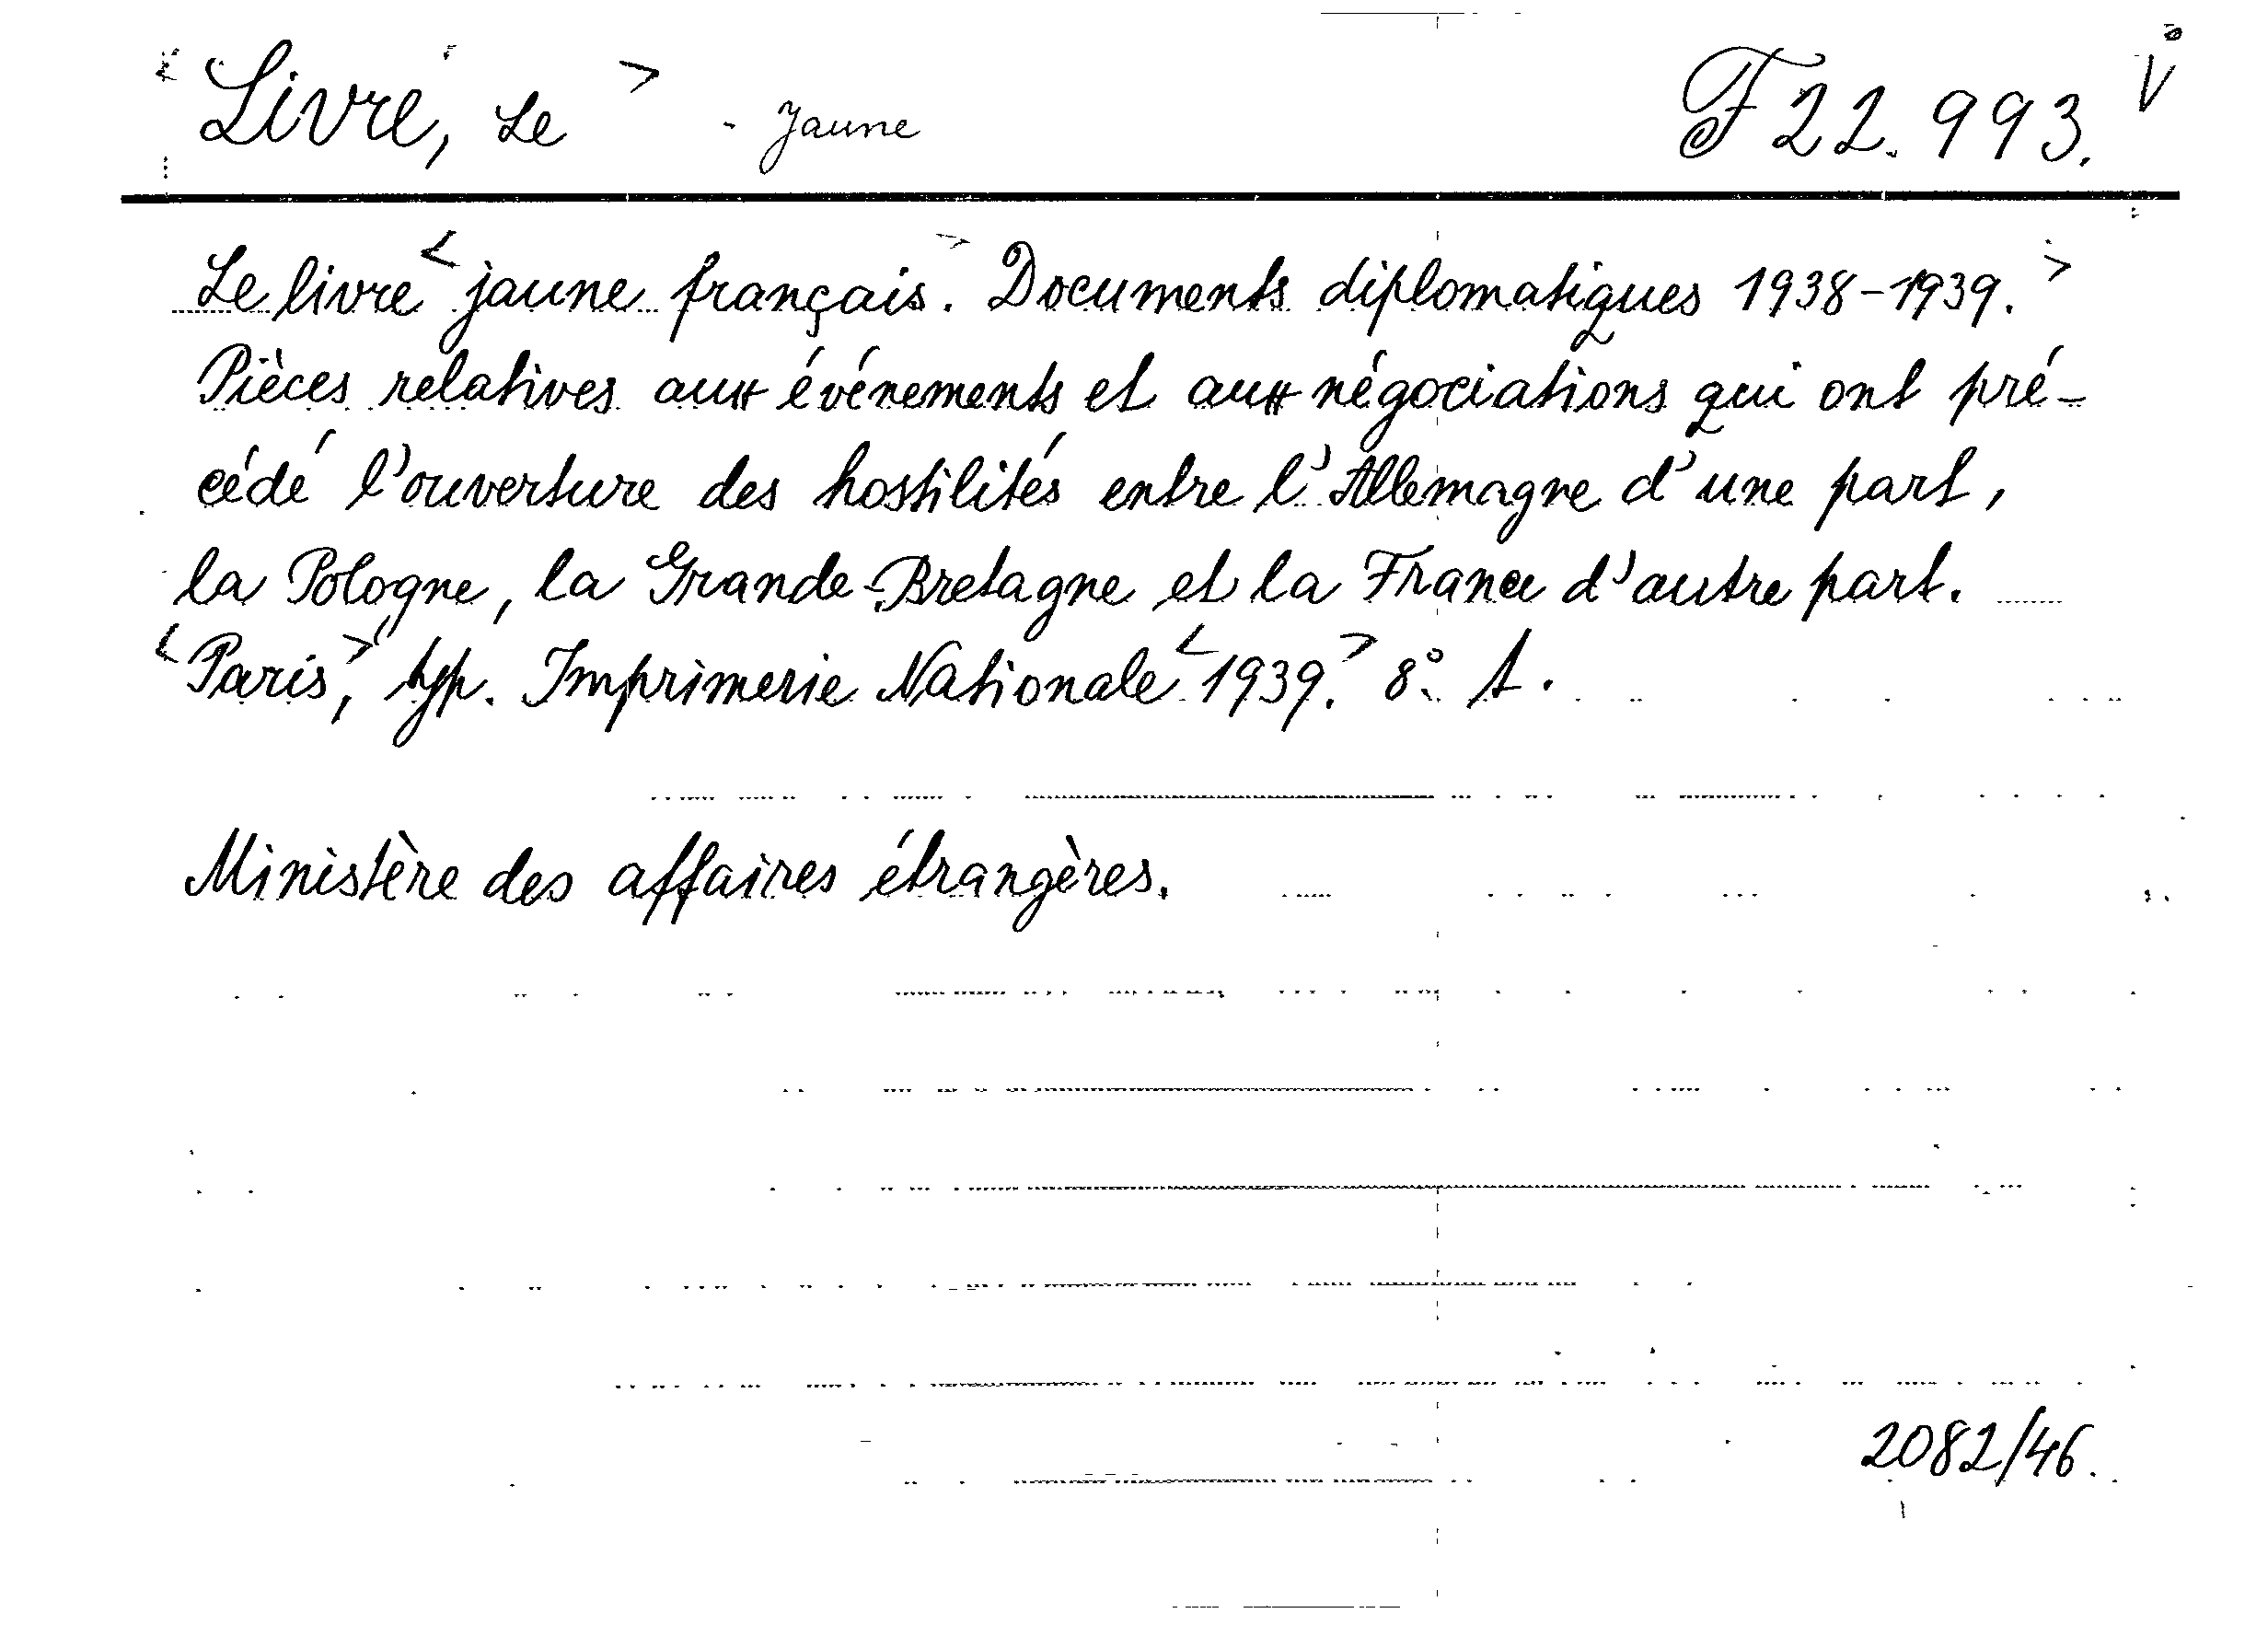 <Livre, Le> - Jaune F 22.993. V
Le livre <jaune français.> Documents diplomatiques 1938-1939.>
Pièces relatives aux événements et aux négociations qui ont pré-
cédé l'ouverture des hostilités entre l'Allemagne d'une part,
la Pologne, la Grande-Bretagne et la France d'autre part.
<Paris,> typ. Imprimerie Nationale <1939.> 8° 1.
Ministère des affaires étrangères.
2082/46.